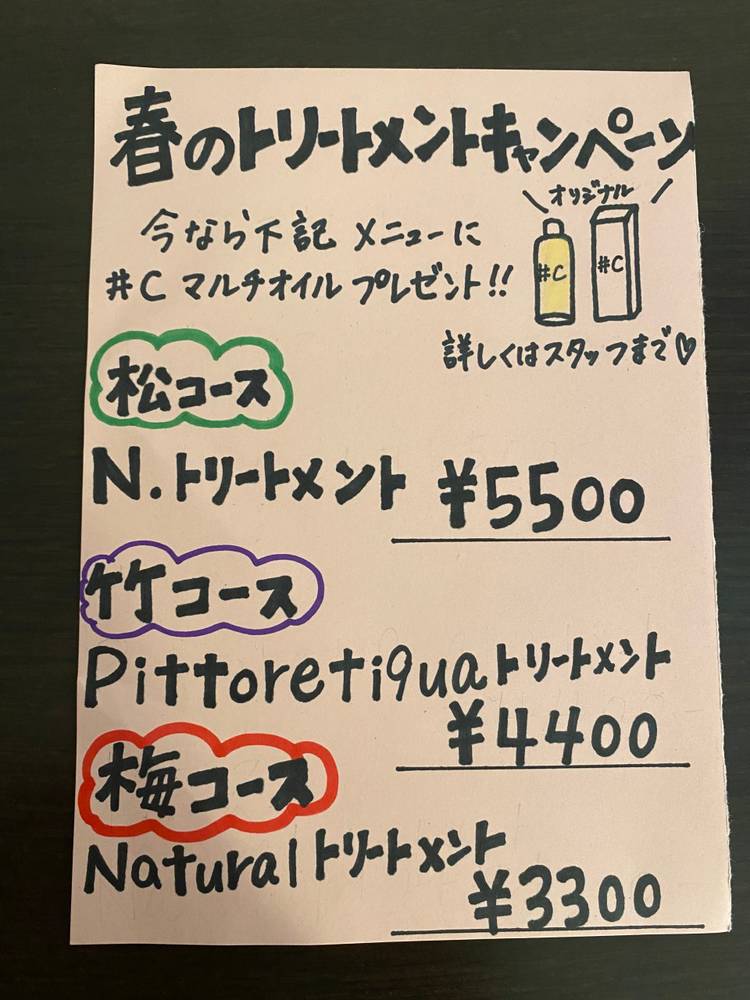 春のトリートメントキャンペーン
オリジナル
今なら下記メニューに
#C マルチオイル プレゼント!!
#C
#C
詳しくはスタッフまで♡
松コース
N.トリートメント ¥5500
竹コース
Pittoretiquaトリートメント
¥4400
梅コース
Naturalトリートメント
¥3300